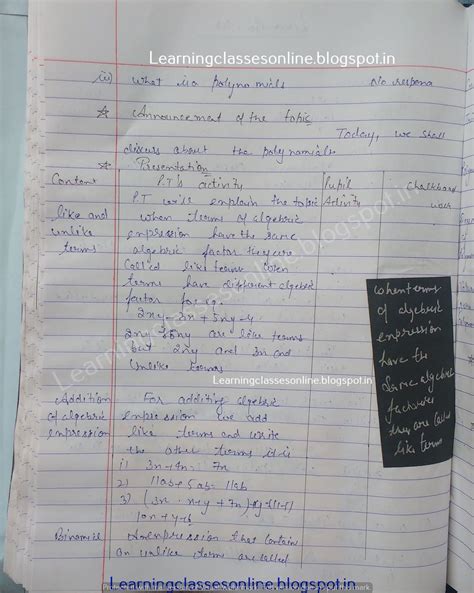 Learningclassesonline.blogspot.in
iii) What is a polynomials No respons
★ Announcement of the topic
Today, we shall
discuss about the polynomials
★ Presentation
Content P.T's activity Pupil Activity Chalkboard work
like and unlike terms
P.T will explain the topic
when terms of algebric
expression have the same
algebric factor they are
called like terms when
terms have different algebric
factor for eg.
2xy-3x+5xy-4
2xy, 5xy are like terms
but 2xy and 3x and
unlike terms
when terms
of algebric
expression
have the
same algebric
factors
they are called
like terms
Learningclassesonline.blogspot.in
Learningclassesonline.blogspot.in
Addition of algebric expression
For additing algebric
expression we add
like terms and write
the other terms it is
1)
2) 11ab
3)
10x+y-6
Binomial An expression that contain
an unlike terms are called
Learningclassesonline.blogspot.in